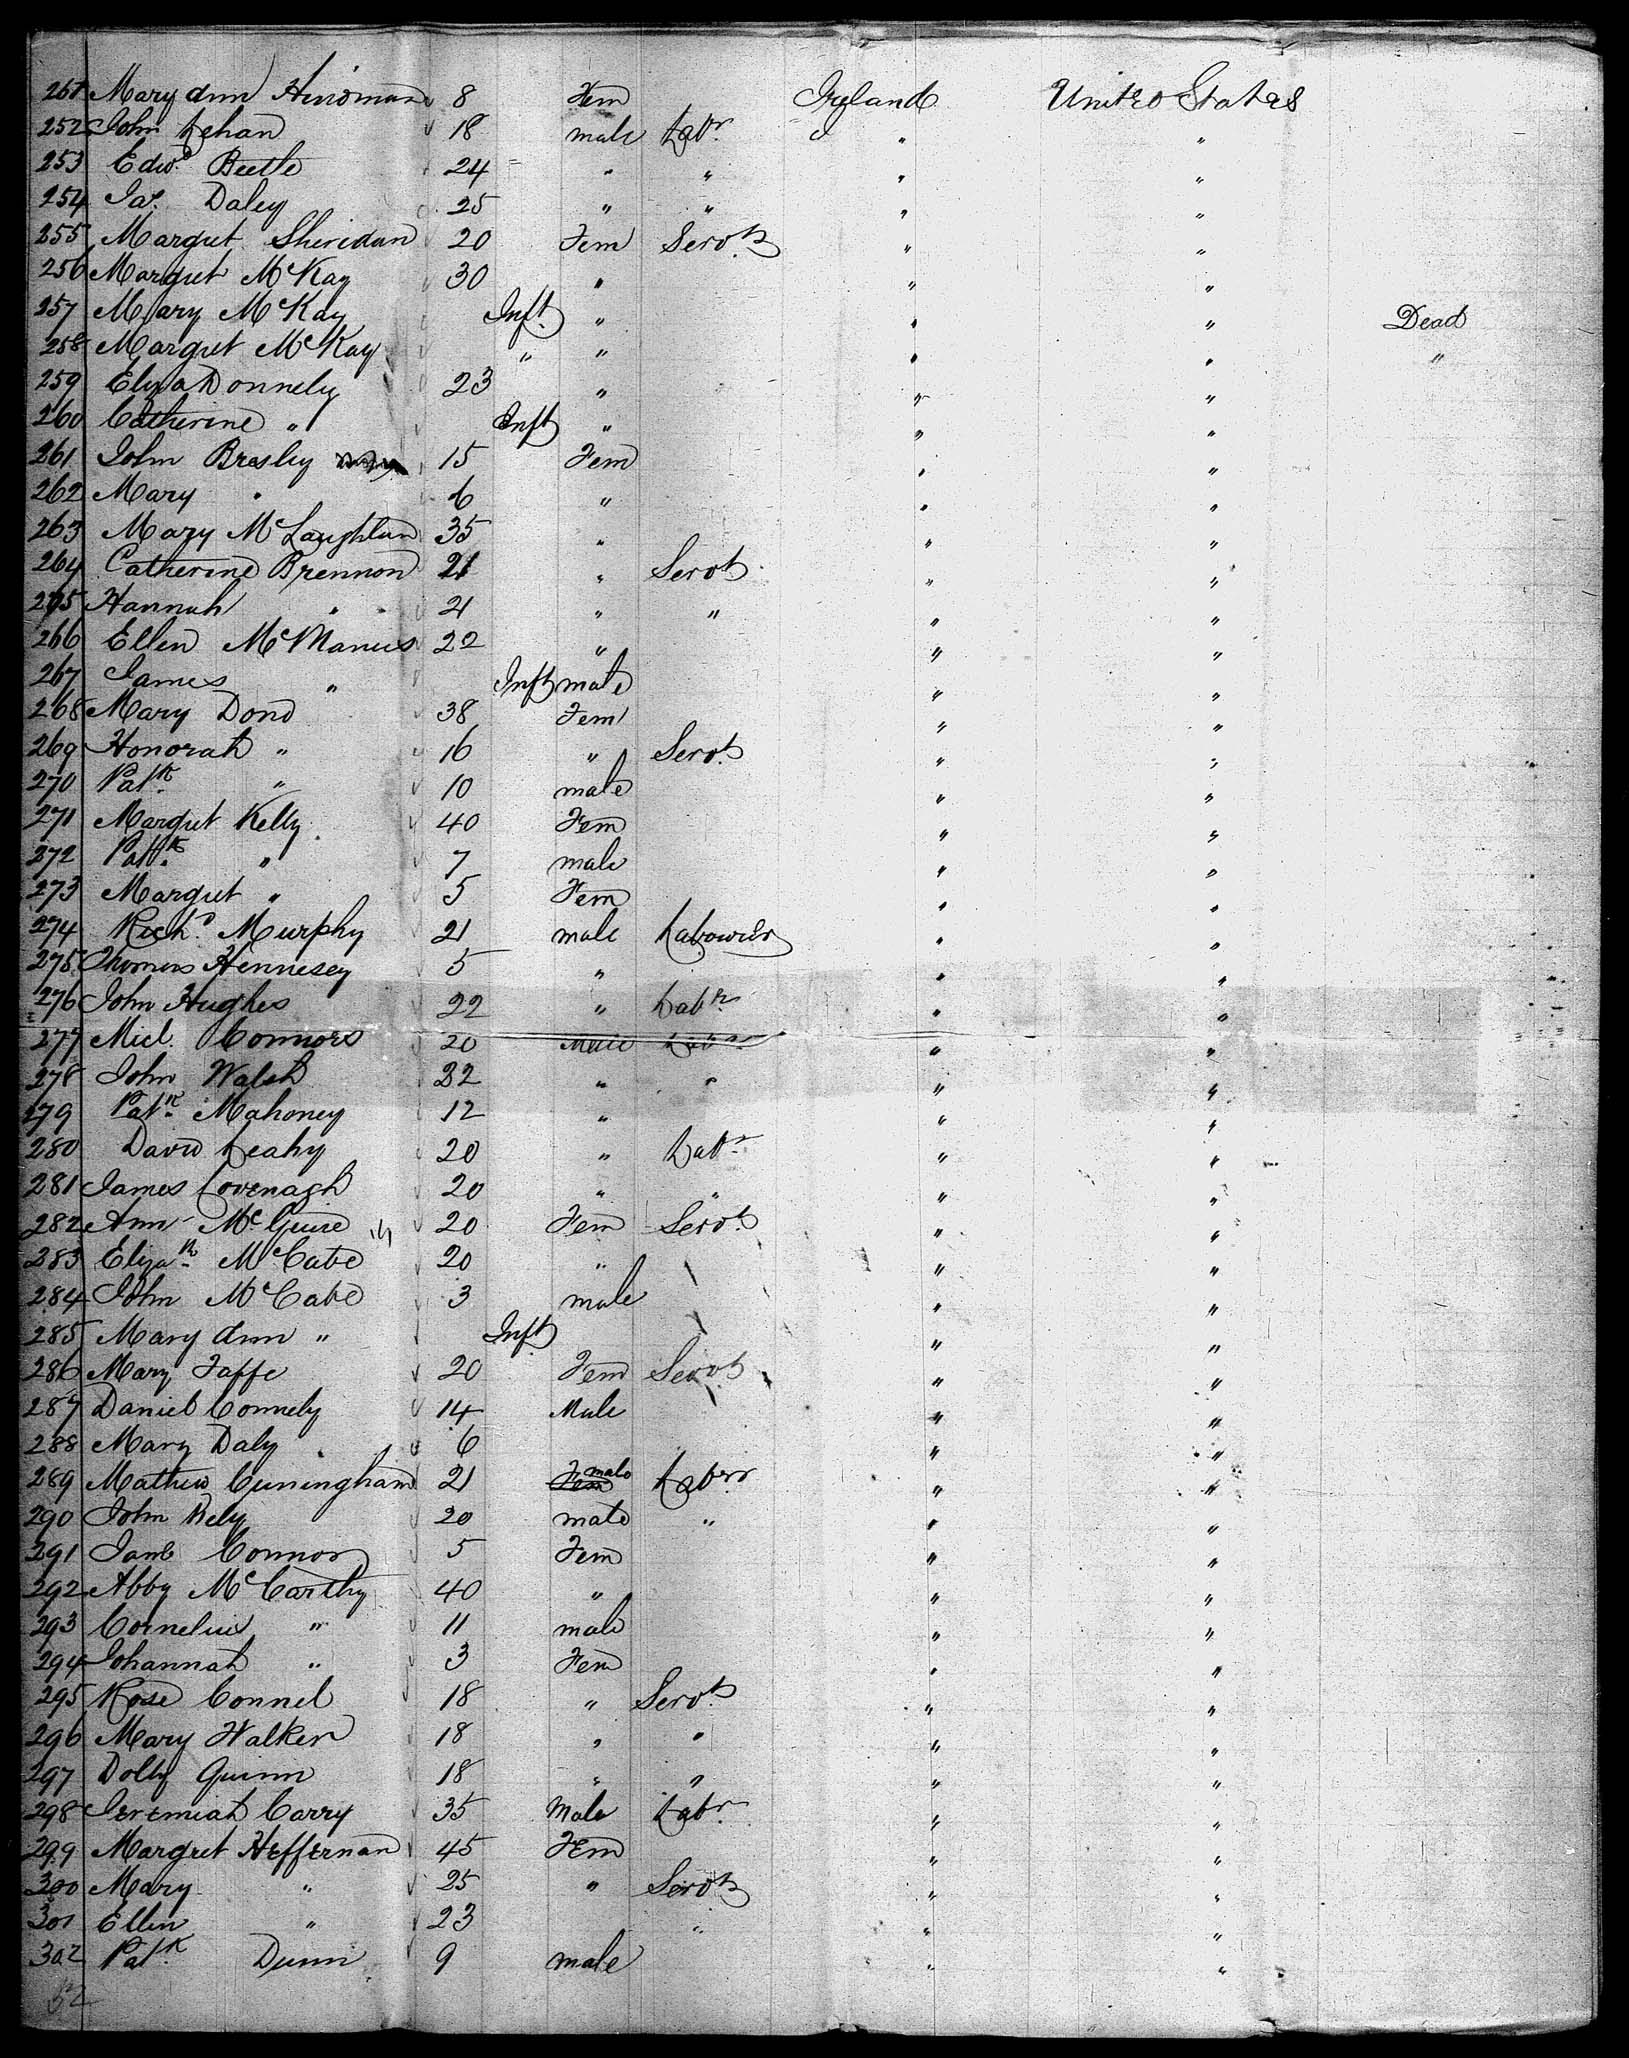 251 Mary Ann Hindman 8 Fem Ireland United States
252 John Lehan 18 male Labr. " "
253 Edwd. Beetle 24 " " " "
254 Jas. Daley 25 " " " "
255 Margret Sheridan 20 Fem Servt. " "
256 Margret McKay 30 " " "
257 Mary McKay Inft. " " " Dead
258 Margret McKay " " " " "
259 Eliza Donnely 23 " " "
260 Catherine " Inft " " "
261 John Bresley 15 Fem " "
262 Mary " 6 " " "
263 Mary McLaughlan 35 " " "
264 Catherine Brennon 21 " Servt " "
265 Hannah " 21 " " " "
266 Ellen McManus 22 " " "
267 James " Inft male " "
268 Mary Dond 38 Fem " "
269 Honorah " 16 " Servt. " "
270 Patk. " 10 male " "
271 Margret Kelly 40 Fem " "
272 Patk. " 7 male " "
273 Margret " 5 Fem " "
274 Richd. Murphy 21 male Labourer " "
275 Thomas Hennesey 5 " " "
276 John Hughes 22 " Labr. " "
277 Micl. Connors 20 Male Labr. " "
278 John Walsh 22 " " " "
279 Patk. Mahoney 12 " " "
280 David Leahy 20 " Labr. " "
281 James Covenagh 20 " " " "
282 Ann McGuire 20 Fem Servt. " "
283 Elizath. McCabe 20 " " "
284 John McCabe 3 male " "
285 Mary Ann " Inft " "
286 Mary Taffe 20 Fem Servt " "
287 Daniel Connely 14 Male " "
288 Mary Daly 6 " "
289 Mathew Cuningham 21 Fem male Labrr " "
290 John Kely 20 male " " "
291 Jane Connor 5 Fem " "
292 Abby McCarthy 40 " " "
293 Cornelius " 11 male " "
294 Johannah " 3 Fem " "
295 Rose Connel 18 " Servt. " "
296 Mary Walker 18 " " " "
297 Dolly Quinn 18 " " " "
298 Jeremiah Carry 35 Male Labr. " "
299 Margret Heffernan 45 Fem " "
300 Mary " 25 " Servt " "
301 Ellen " 23 " " "
302 Patk. Dunn 9 male " "
52